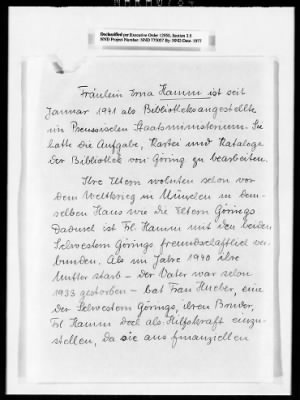 Declassified per Executive Order 12958, Section 3.5
NND Project Number: NND 775057 By: NND Date: 1977
Fräulein Erna Hamm ist seit
Januar 1941 als Bibliotheksangestellte
im Preussischen Staatsministerium. Sie
hatte die Aufgabe, Kartei und Kataloge
der Bibliothek von Göring zu bearbeiten.
Ihre Eltern wohnten schon vor
dem Weltkrieg in München in dem-
selben Haus wie die Eltern Görings
Dadurch ist Frl. Hamm mit den beiden
Schwestern Görings freundschaftlich ver-
bunden. Als im Jahre 1940 ihre
Mutter starb - der Vater war schon
1933 gestorben - bat Frau Hueber, eine
der Schwestern Görings, ihren Bruder,
Frl. Hamm doch als Hilfskraft einzu-
stellen, da sie aus finanziellen